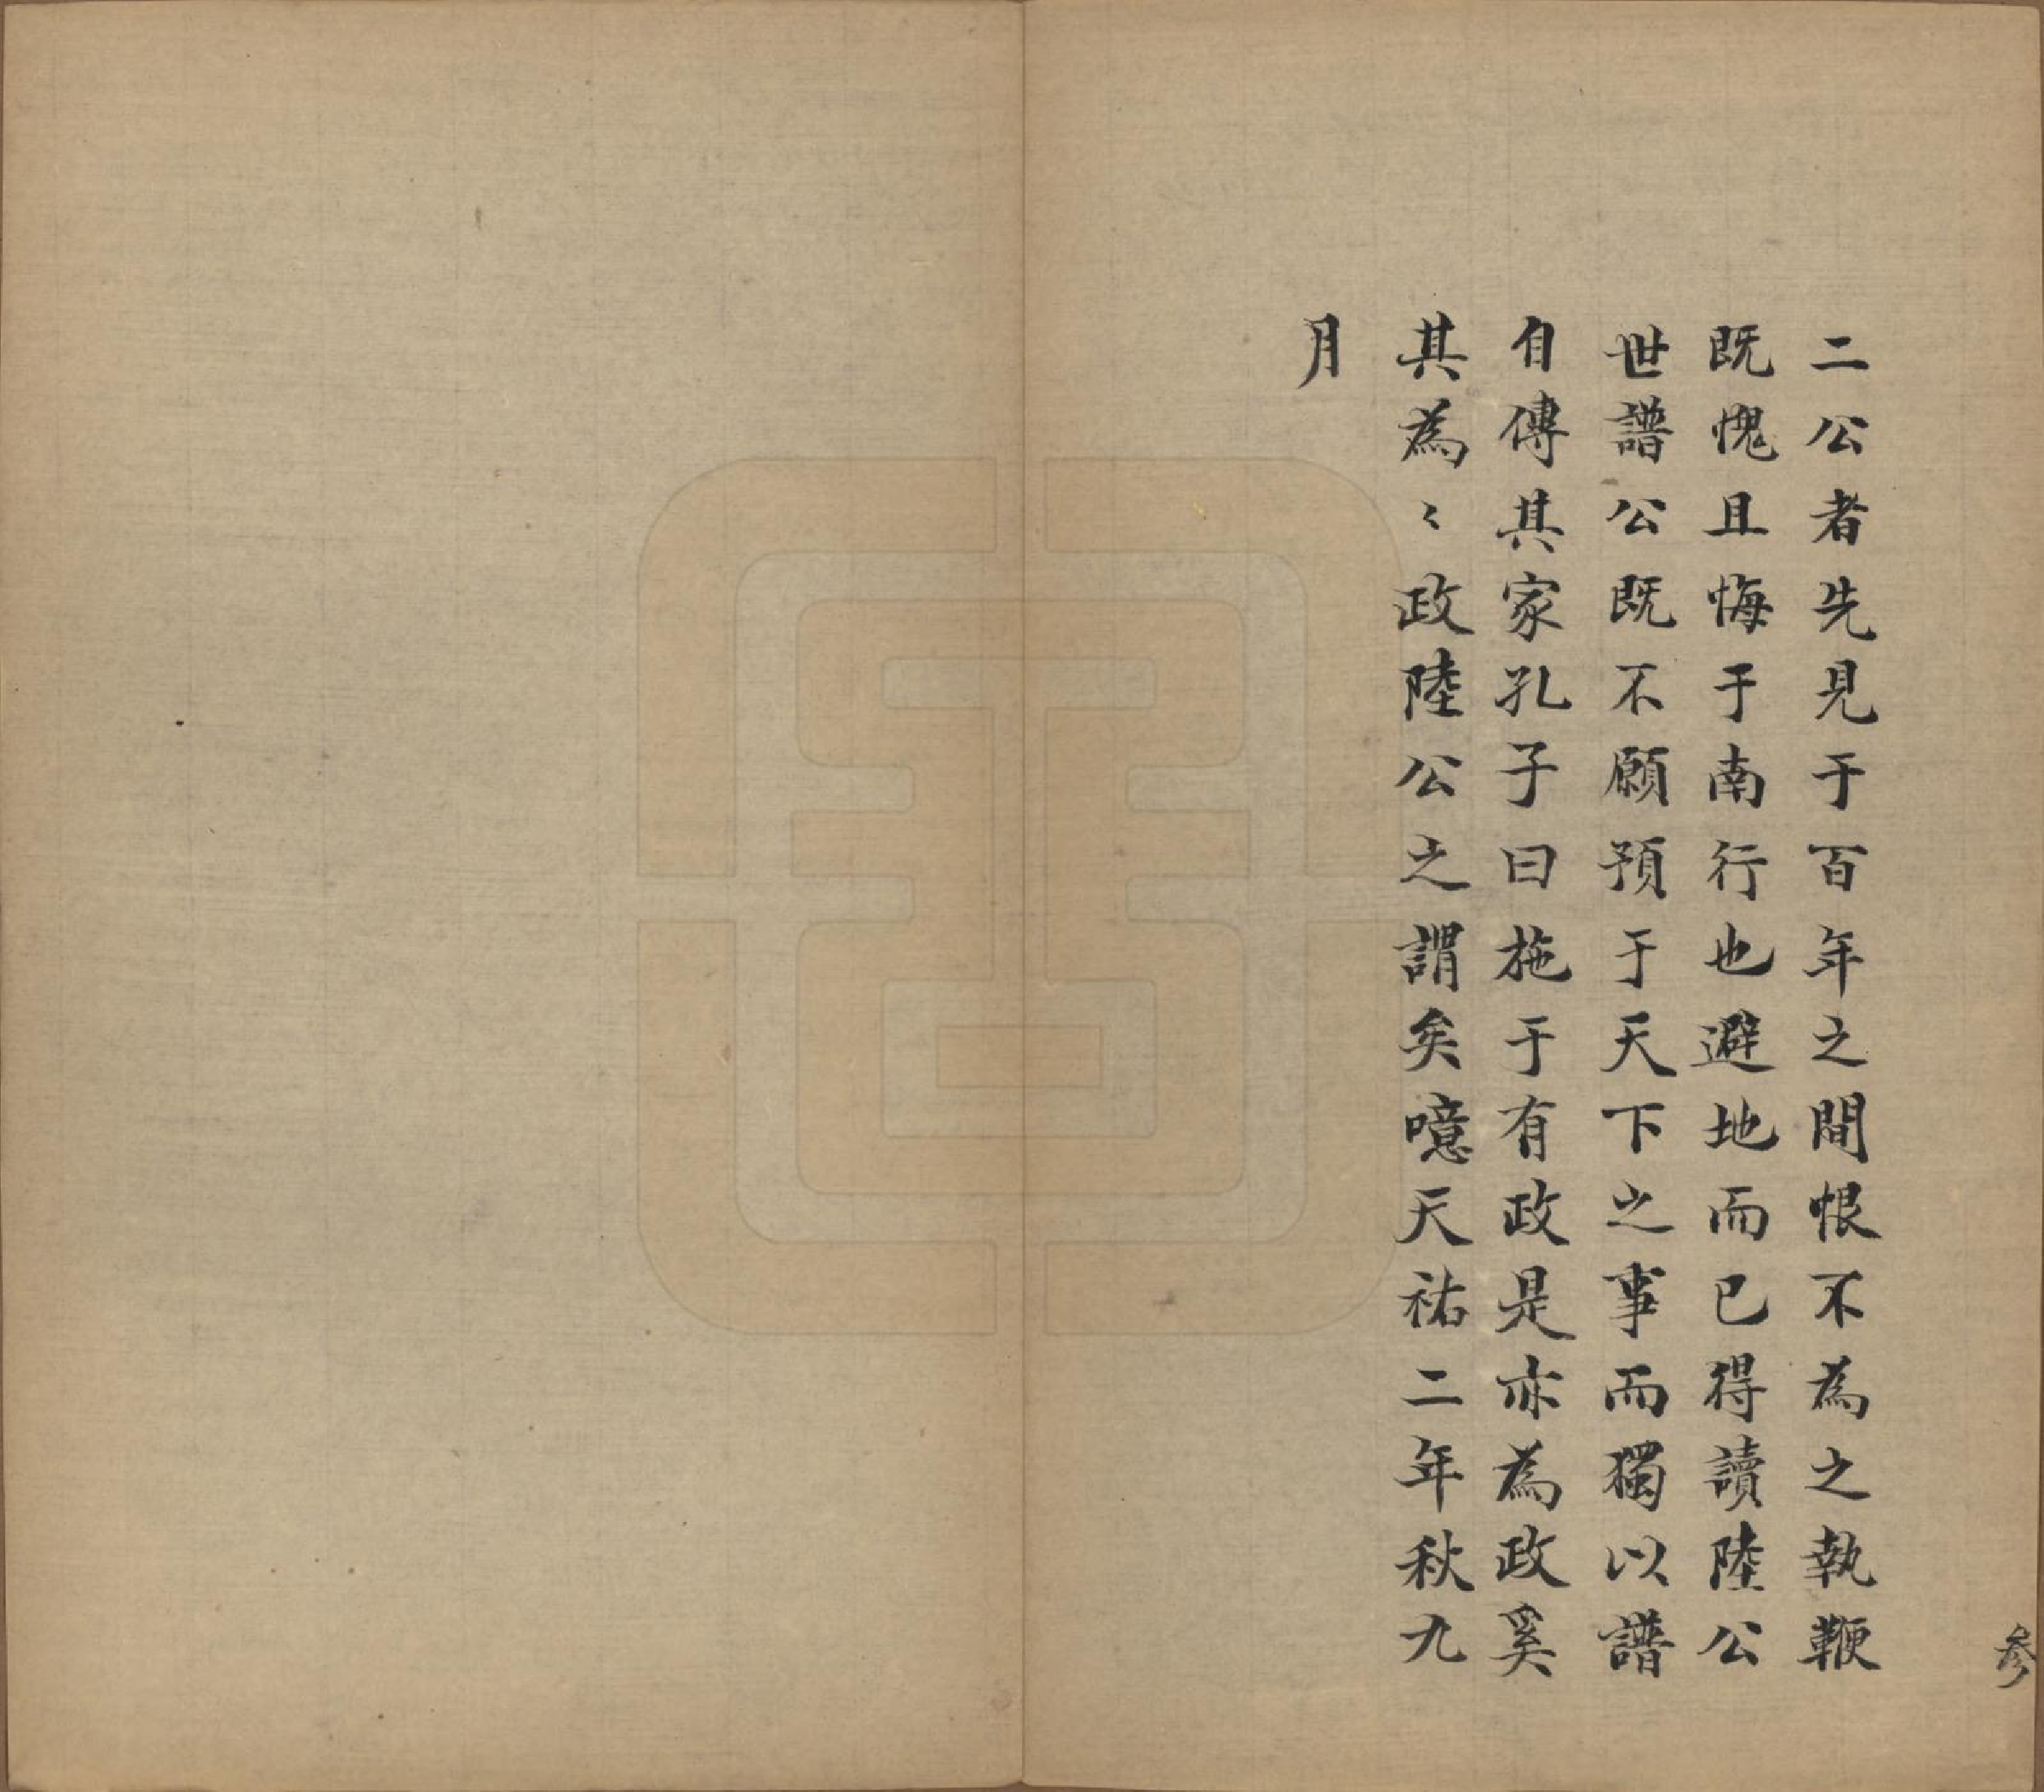 二公者先見于百年之間恨不為之執鞭
既愧且悔于南行也避地而已得讀陸公
世譜公既不願預于天下之事而獨以譜
自傳其家孔子曰施于有政是亦為政奚
其為〻政陸公之謂矣噫天祐二年秋九
月
参